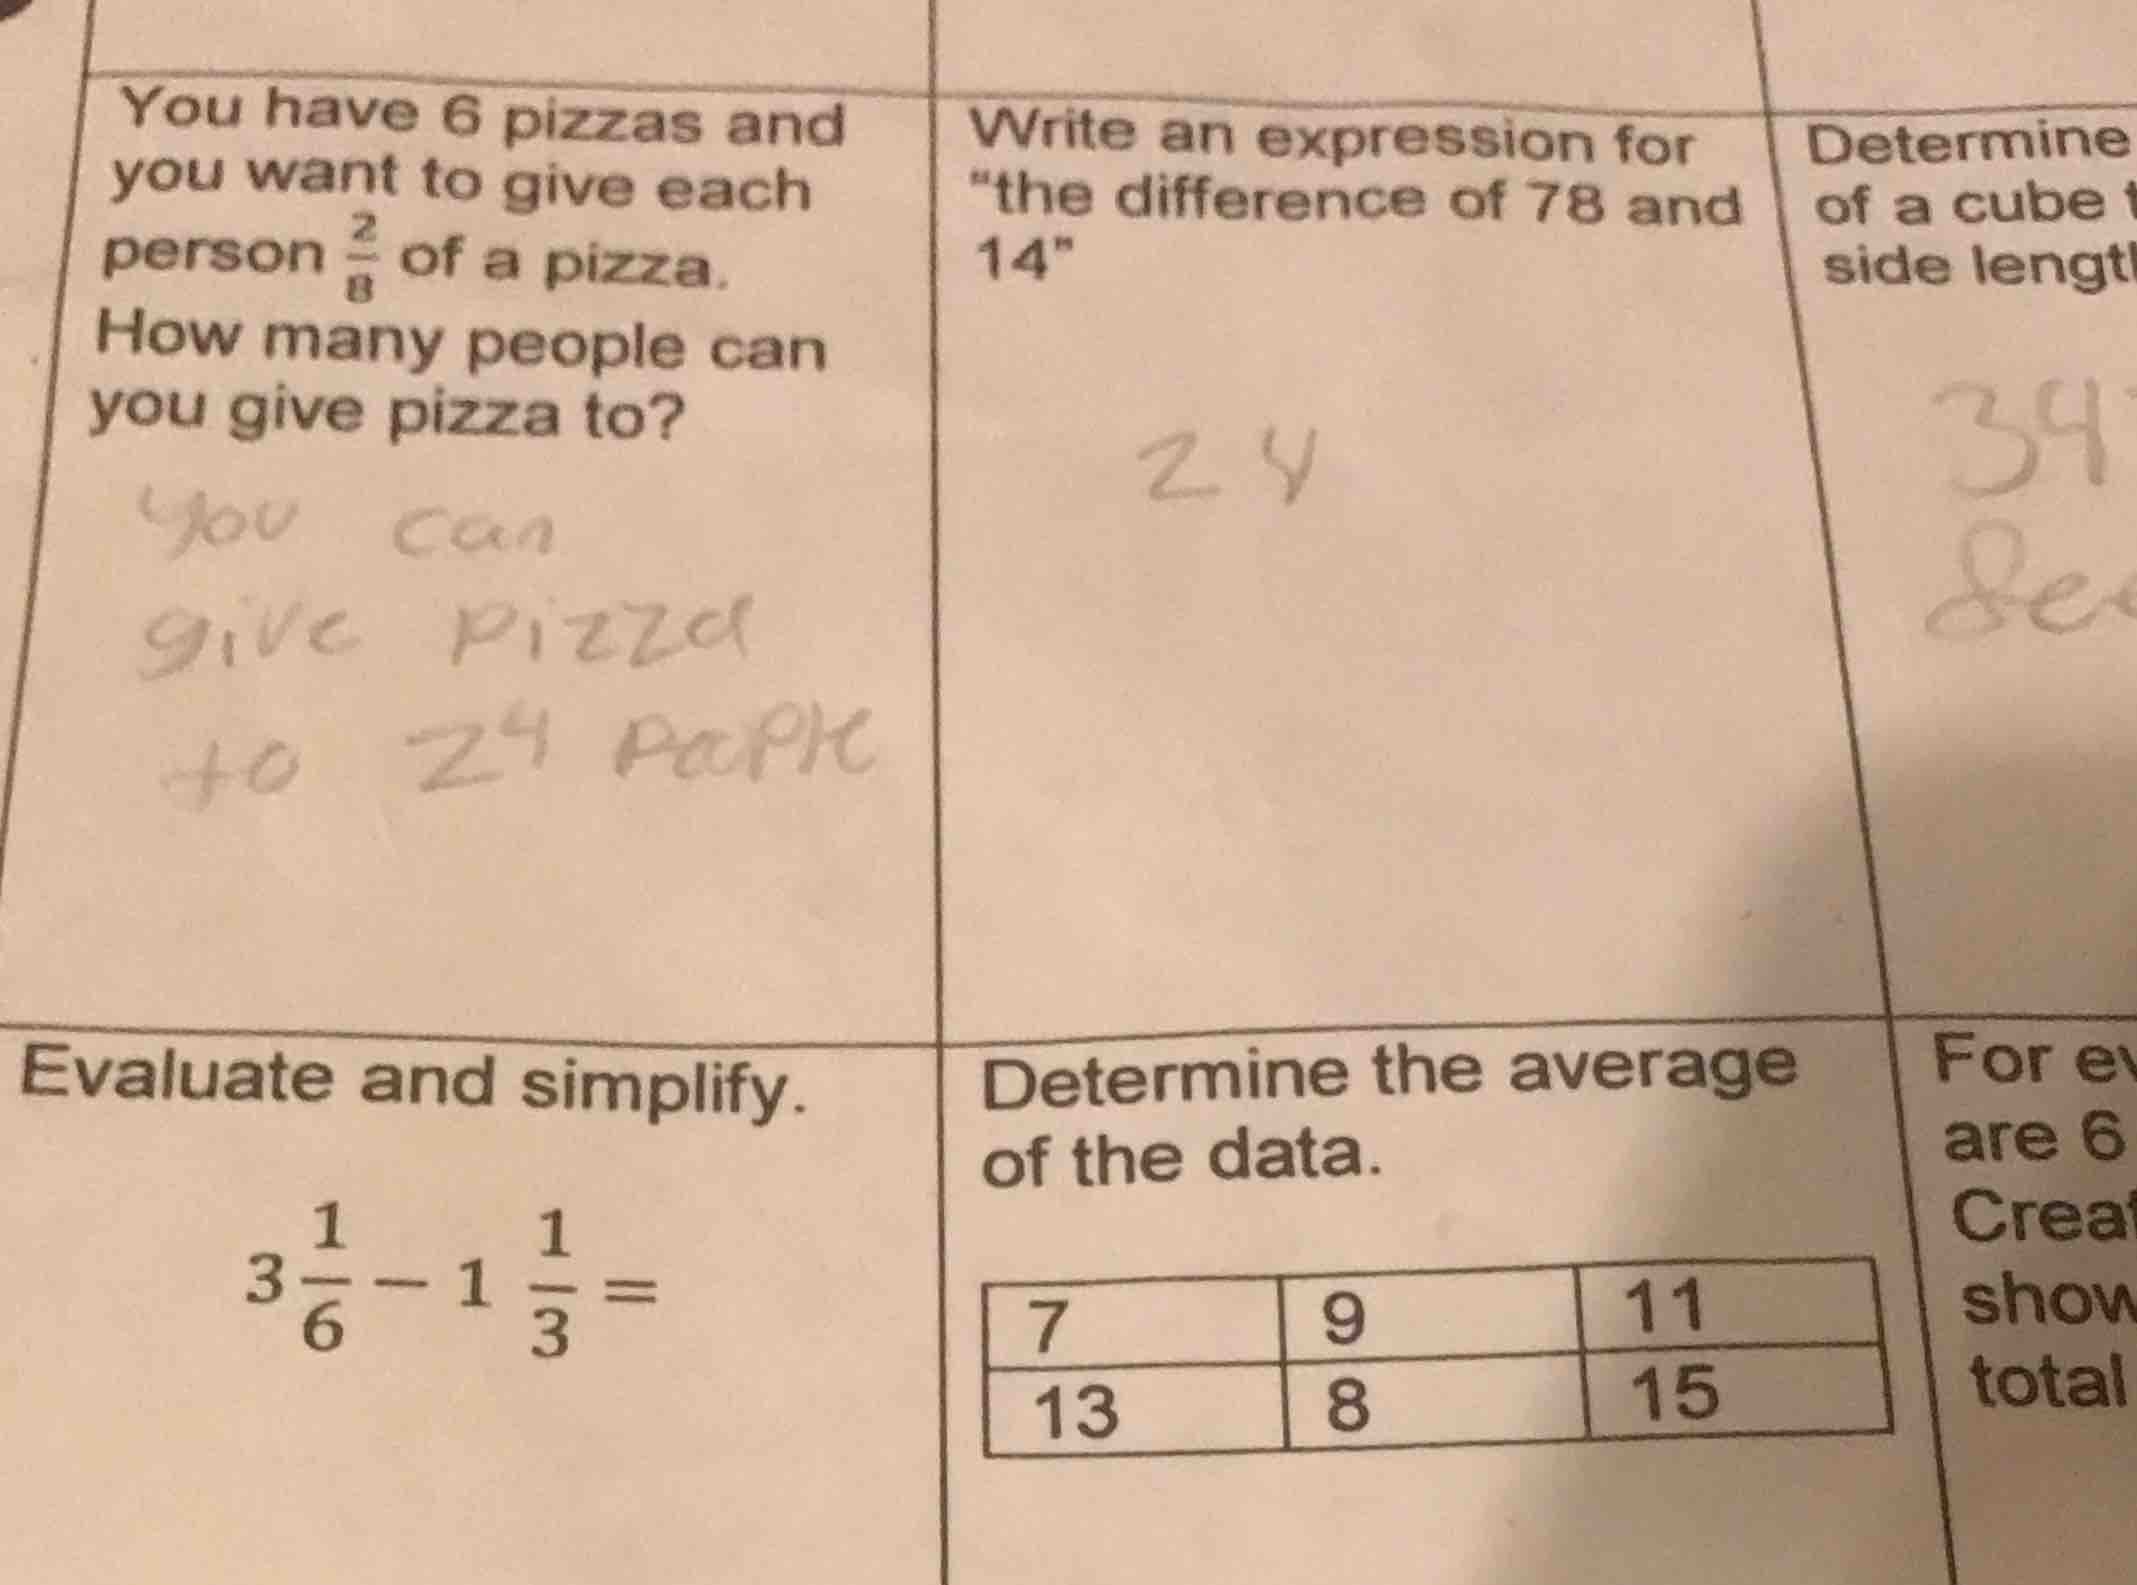 You have 6 pizzas and
you want to give each
person 2/8 of a pizza.
How many people can
you give pizza to?
you can
give pizza
to 24 PaPle
Write an expression for
"the difference of 78 and
14"
24
Determine
of a cube
side
34
Evaluate and simplify.
3 1/6 − 1 1/3 =
Determine the average
of the data.
7 9 11
13 8 15
For
are 6
total